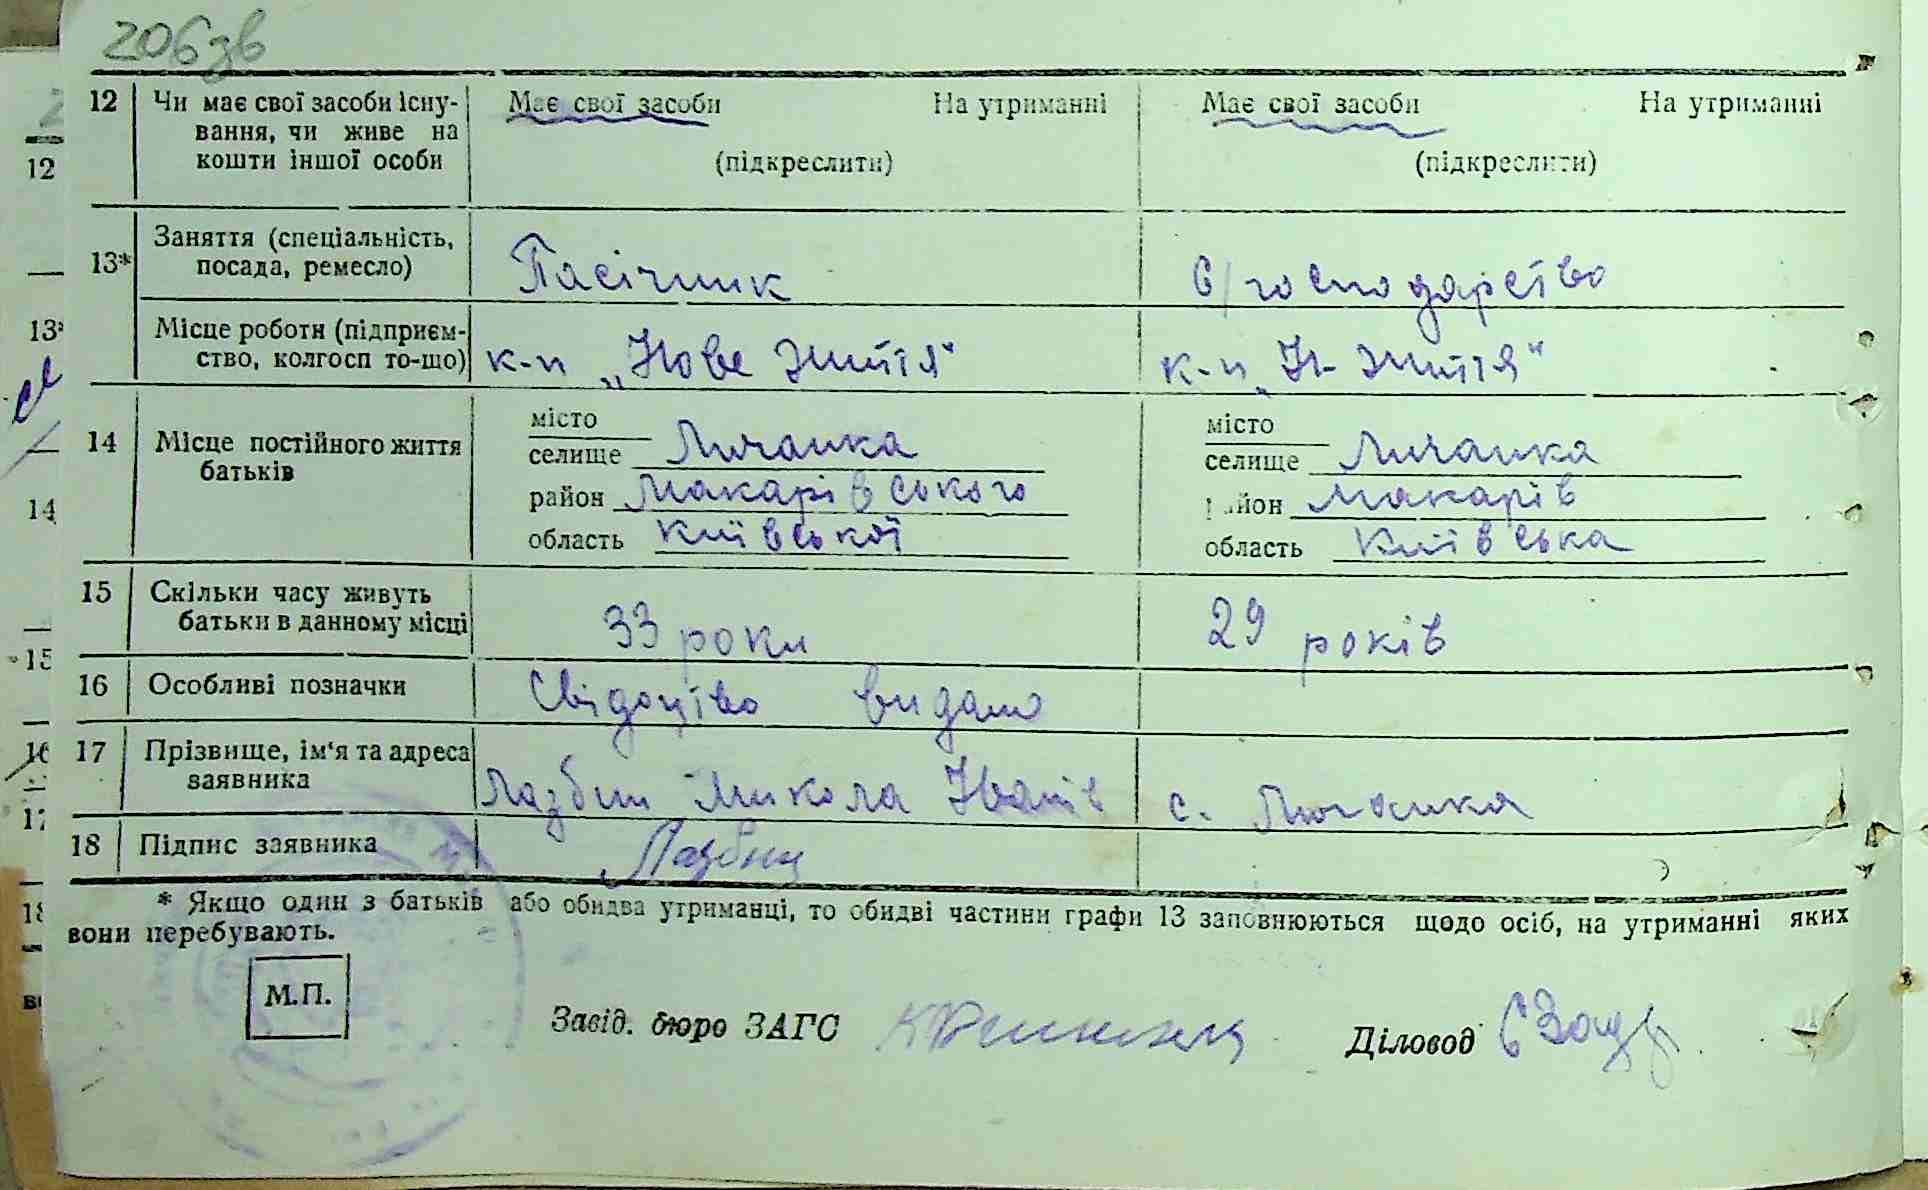 206зв
12 Чи має свої засоби існу- Має свої засоби На утриманні Має свої засоби На утриманні
вання, чи живе на
кошти іншої особи (підкреслити) (підкреслити)
13* Заняття (спеціальність, посада, ремесло) Пасічник С/господарство
Місце роботи (підприєм- к-п „Нове життя" к-п „Н-життя"
ство, колгосп то-що)
14 Місце постійного життя батьків
місто місто
селище Личанка селище Личанка
район Макарівського район Макарів
область Київської область Київська
15 Скільки часу живуть 33 роки 29 років
батьки в данному місці
16 Особливі позначки Свідоцтво видано
17 Прізвище, ім'я та адреса Лазбин Микола Іванів с. Личанка
заявника
18 Підпис заявника Лазбин
* Якщо один з батьків або обидва утриманці, то обидві частини графи 13 заповнюються щодо осіб, на утриманні яких
вони перебувають.
М.П.
Завід. бюро ЗАГС Діловод
12
13*
14
15
16
17
18